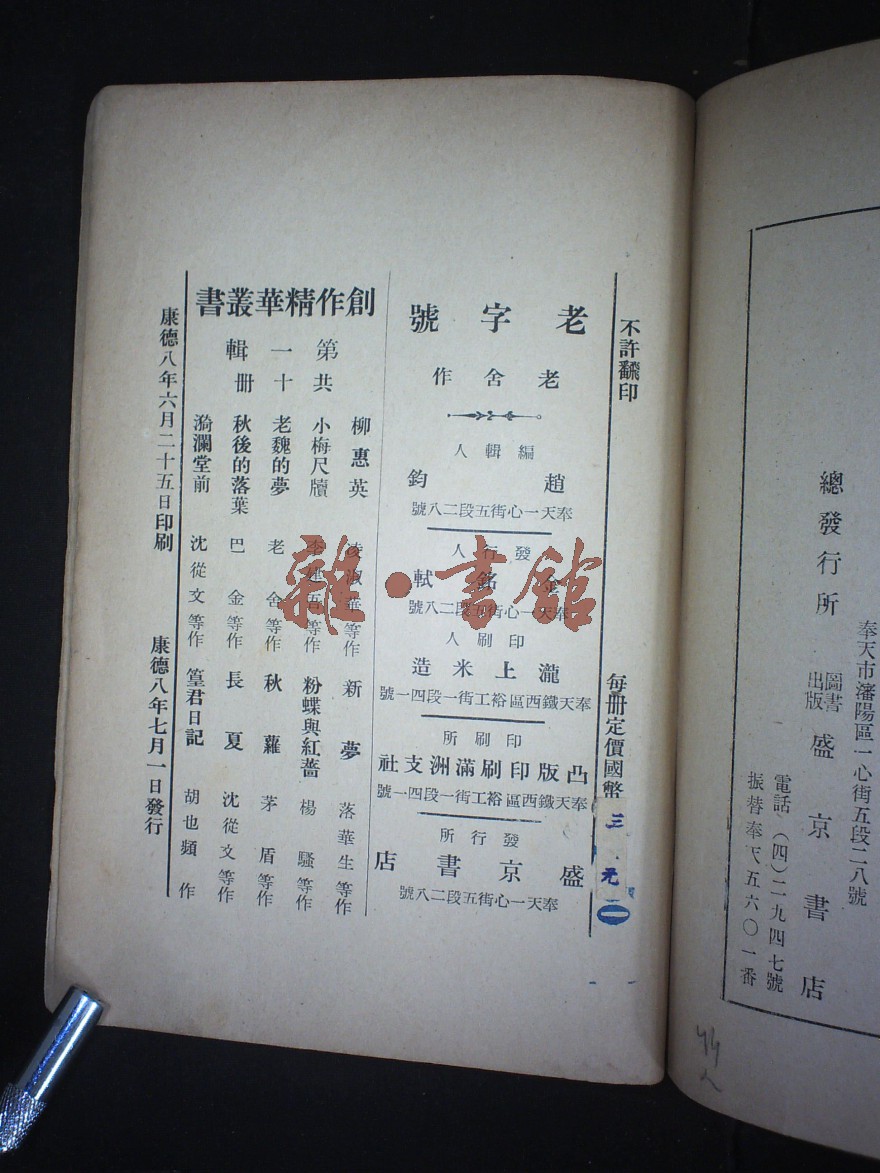 總發行所
圖書
出版
盛京書店
奉天市瀋陽區一心街五段二八號
電話(四)二九四七號
振替奉天五六〇一番
不許翻印
每册定價國幣
三.元
老字號
老舍作
編輯人
趙鈞
奉天一心街五段二八號
發行人
金銘軾
奉天一心街五段二八號
印刷人
瀧上米造
奉天鐵西區裕工街一段四一號
印刷所
凸版印刷滿洲支社
奉天鐵西區裕工街一段四一號
發行所
盛京書店
奉天一心街五段二八號
創作精華叢書
第一輯
共十册
柳惠英 凌淑華等作
新夢 落華生等作
小梅尺牘 李建吾等作
粉蝶與紅薔 楊騷等作
老魏的夢 老舍等作
秋蘿 茅盾等作
秋後的落葉 巴金等作
長夏 沈從文等作
漪瀾堂前 沈從文等作
篁君日記 胡也頻作
康德八年六月二十五日印刷
康德八年七月一日發行
雜·書館
44